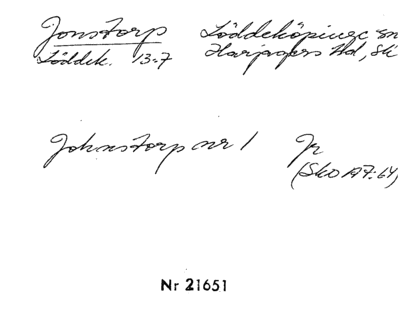 Jonstorp Löddeköpinge sn
Löddek. 13:7 Harjagers Hd, Sk
Johnstorp nr 1 Jr
(Sko A7:64)
Nr 21651